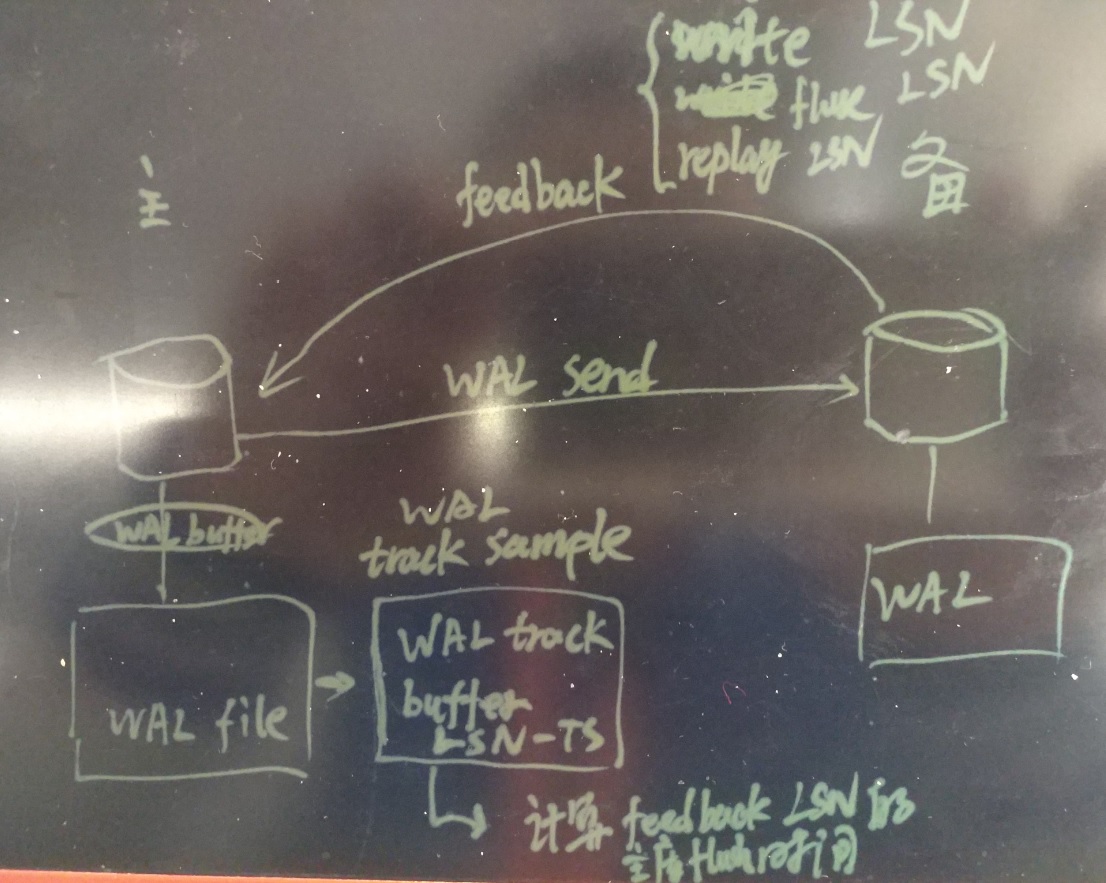 write LSN
flux LSN
replay LSN
主
备
feedback
WAL send
WAL buffer
WAL
track sample
WAL file
WAL track
buffer
LSN-TS
WAL
计算 feedback LSN的
主库flush时间